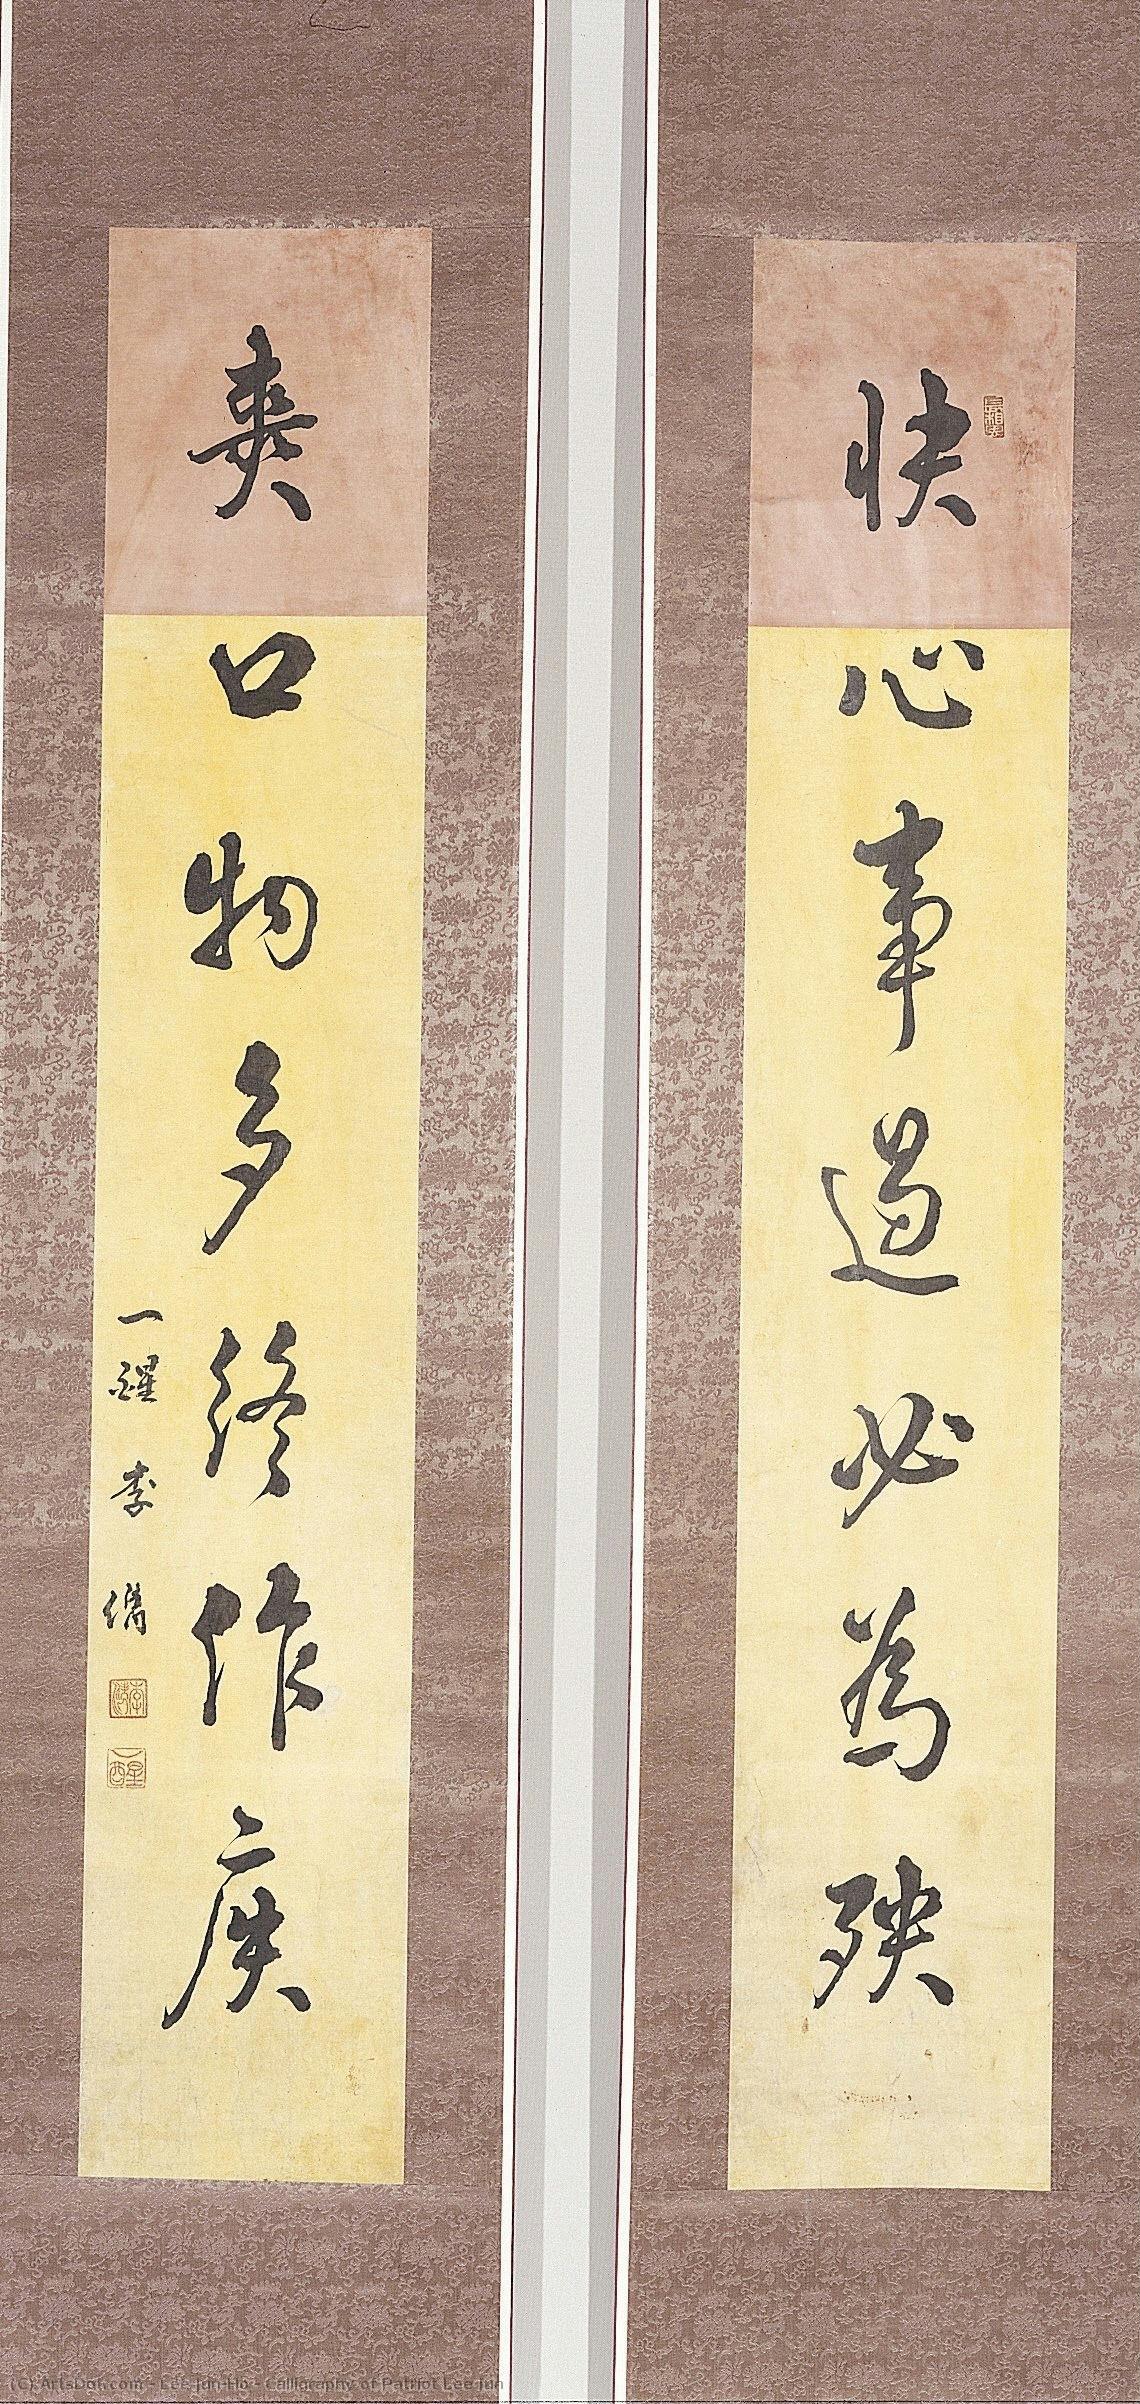 快心事過必為殃
爽口物多終作疾
一醒李儁
(C) ArtsDot.com - Lee-Jun-Ho - Calligraphy of Patriot Lee Jun